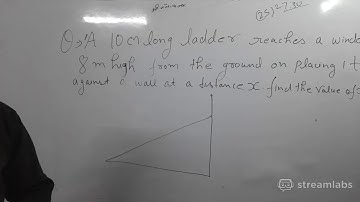 (25)²
Q→ A 10cm long ladder reaches a windo
8m high from the ground on placing it
against a wall at a distance x find the value of
streamlabs